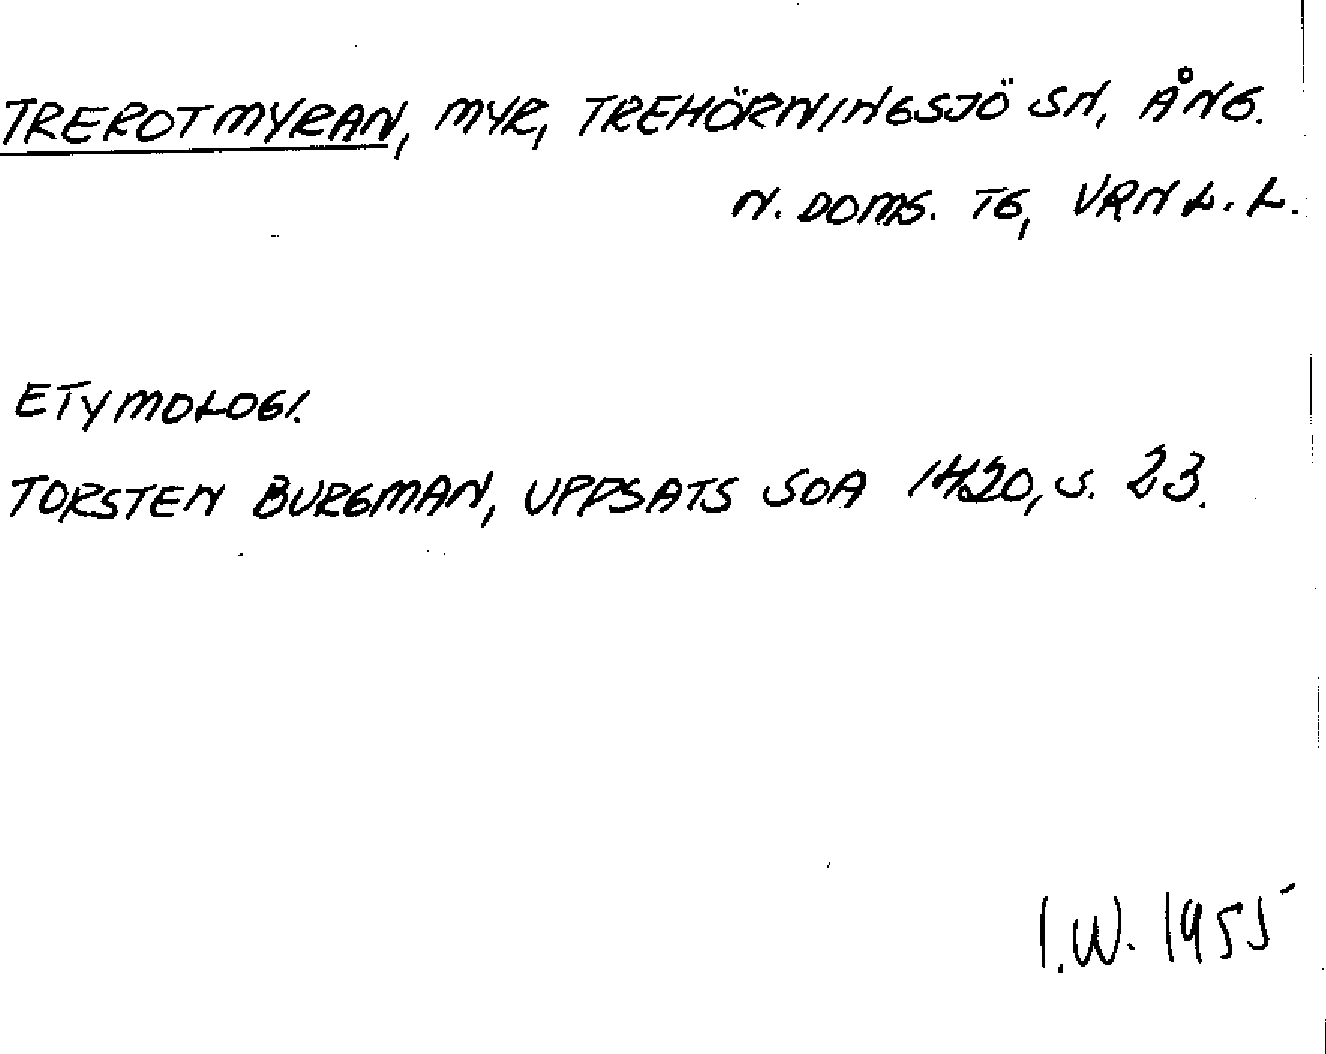 TREROTMYRAN, MYR, TREHÖRNINGSJÖ SN, ÅNG.
N. DOMS. TG, VRNL.L.
ETYMOLOGI.
TORSTEN BURGMAN, UPPSATS SOA 1420, S. 23.
I.W. 1955